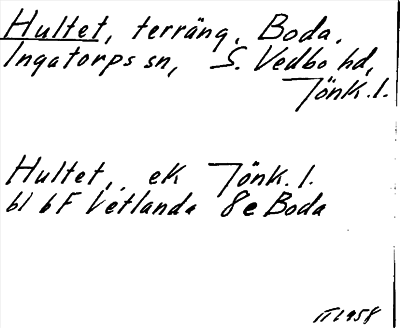 Hultet, terräng. Boda.
Ingatorps sn, S. Vedbo hd,
Jönk. l.
Hultet, ek Jönk. l.
bl 6F Vetlanda 8e Boda
1958